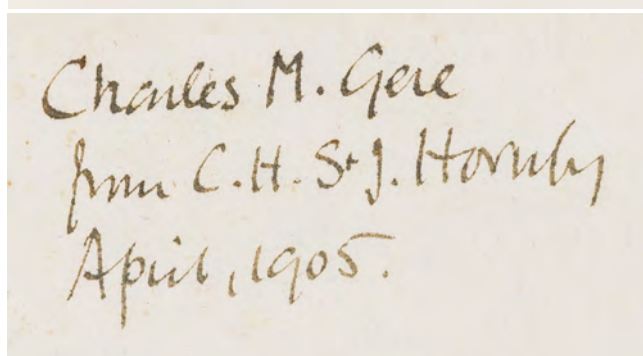 Charles M. Gere
from C. H. St J. Hornby
April, 1905.